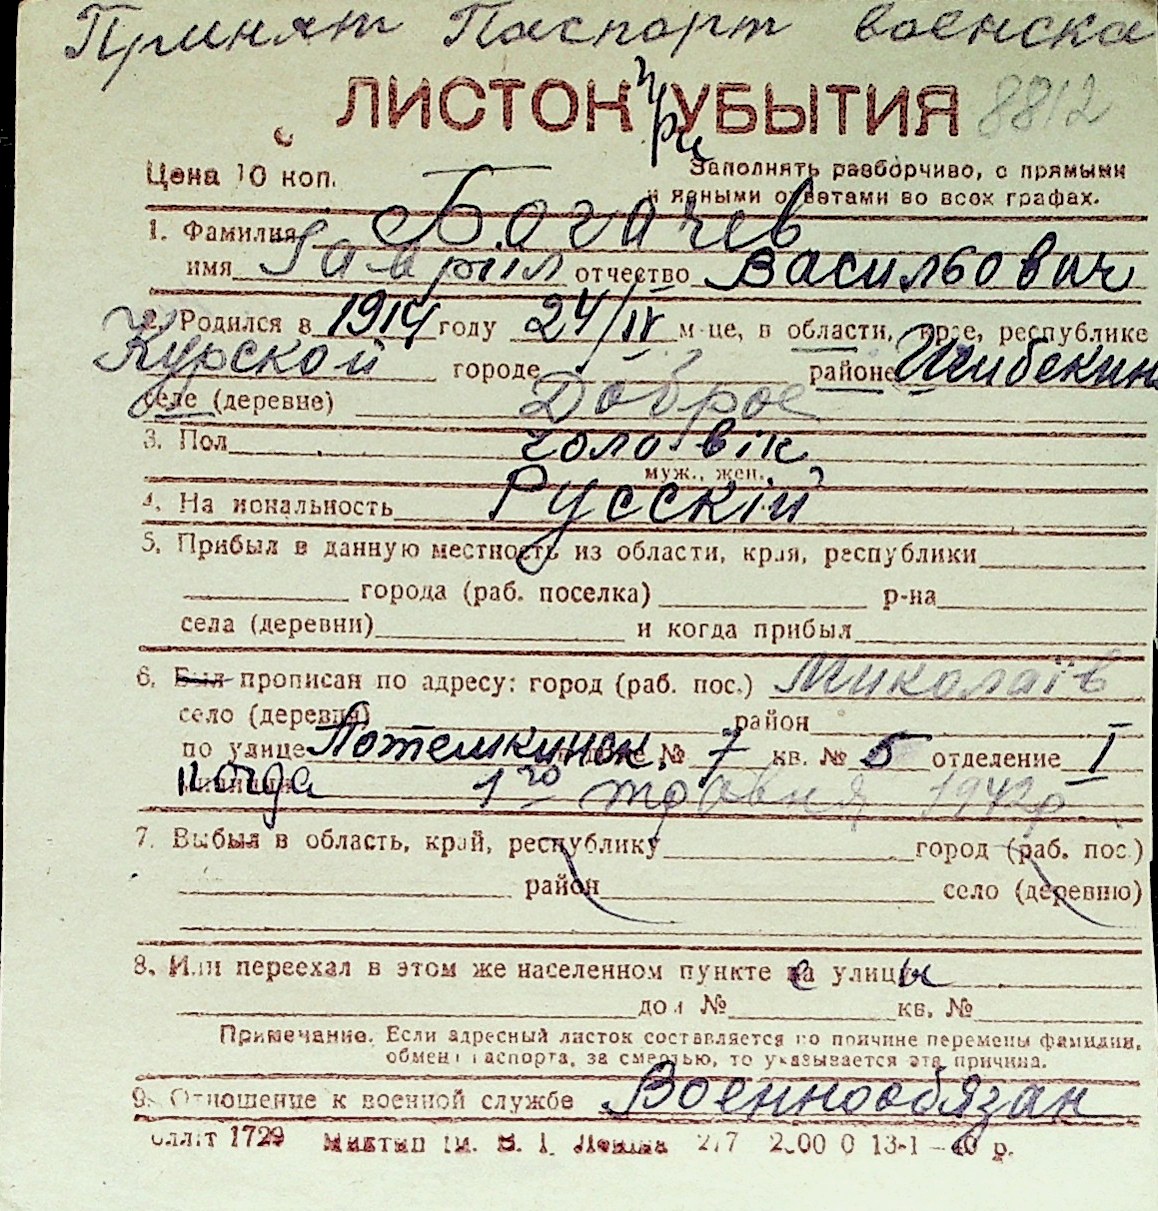 Принят Паспорт военска
ЛИСТОК УБЫТИЯ 8812
Цена 10 коп.
Заполнять разборчиво, с прямыми
и ясными ответами во всех графах.
1. Фамилия Богачев
имя Гавріїл отчество Васильович
2. Родился в 1914 году 24/IV м-це, в области, крае, республике
Курской городе районе Шибекин
селе (деревне) Доброе
3. Пол чоловік
муж., жен.
4. Национальность Русскій
5. Прибыл в данную местность из области, края, республики
города (раб. поселка) р-на
села (деревни) и когда прибыл
6. Был прописан по адресу: город (раб. пос.) Миколаїв
село (деревня) район
по улице Потемкинск. № 7 кв. № 5 отделение I
1го травня 1942р.
7. Выбыл в область, край, республику город (раб. пос.)
район село (деревню)
8. Или переехал в этом же населенном пункте на улицу
дом № кв. №
Примечание. Если адресный листок составляется по причине перемены фамилии,
обмена паспорта, за смертью, то указывается эта причина.
9. Отношение к военной службе Военнообязан
1729 им. В. И. Ленина 13-1-40 р.